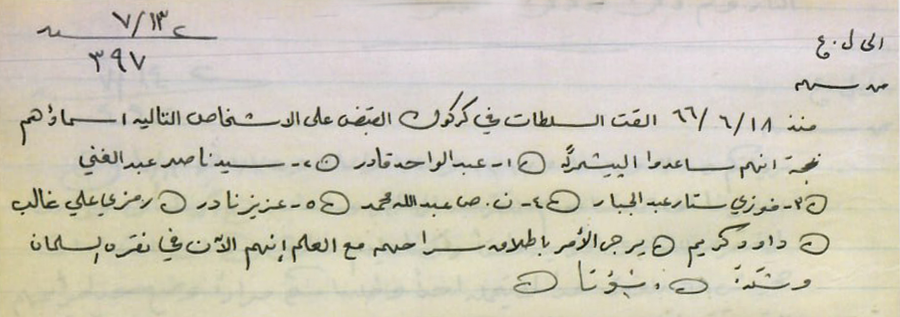 ٧/١٣
٣٩٧
الى ل. ع
منذ ٦٦/٦/١٨ القت السلطات في كركوك القبض على الاشخاص التالية اسماؤهم
بحجة انهم ساعدوا البيشمرگة ١- عبدالواحد قادر ٢- سيد ناصر عبدالغني
٣- فوزي ستار عبدالجبار ٤- ن. ص عبدالله محمد ٥- عزيز نادر رمزي علي غالب
داود كريم يرجى الأمر باطلاق سراحهم مع العلم إنهم الآن في نقرة السلمان